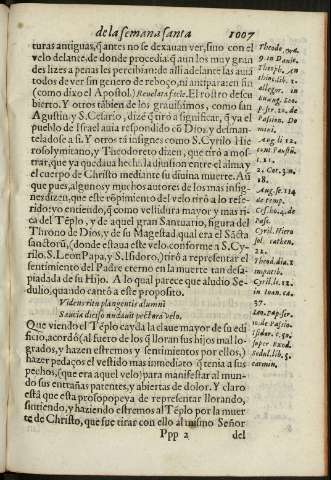 de la semana santa 1007
turas antiguas, q̃ antes no se dexauan ver, sino con el
velo delante, de donde procedia q̃ aun los muy gran
des lizes a penas les percibian: de alli adelante las aura
todos de ver sin genero de reboço, ni antipara en fin
(como dixo el Apostol.) Reuelata facie. El rostro descu
bierto. Y otros tãbien de los grauissimos, como san
Agustin y S. Cesario, dizẽ q̃ tiró a significar, q̃ ya el
pueblo de Israel auia respondido cõ Dios, y desman-
telado se a si. Y otros tã insignes como S. Cyrilo Hie
rosolymitano, y Theodoreto dizen, que tiró a mos-
trar, que ya quedaua hecha la diuision entre el alma y
el cuerpo de Christo mediante su diuina muerte. Aũ
que pues, algunos y muchos autores de los mas insig-
nes dizen, que este rõpimiento del velo tiró a lo refe-
rido: yo entiendo, q̃ como vestidura mayor y mas ri
ca del Tẽplo, y de aquel gran Santuario, figura del
Throno de Dios, y de su Magestad, qual era el Sãcta
sanctorũ, (donde estaua este velo, conforme a S. Cy-
rilo, S. Leon Papa, y S. Isidoro,) tiró a representar el
sentimiento del Padre eterno en la muerte tan desa-
piadada de su Hijo. A lo qual parece que aludio Se-
dulio, quando cantó a este proposito.
Videns ritu plangentis alumni
Saucia discisso nudauit pectora velo.
Que viendo el Tẽplo cayda la claue mayor de su edi
ficio, acordó (al fuero de los q̃ lloran sus hijos mal lo-
grados, y hazen estremos y sentimientos por ellos,)
hazer pedaços el vestido mas inmediato q̃ tenia a sus
pechos, (que era aquel velo) para manifestar al mun-
do sus entrañas patentes, y abiertas de dolor. Y claro
està que esta prosopopeya de representar llorando,
sintiendo, y haziendo estremos al Tẽplo por la muer
te de Christo, que fue tirar con ello al mismo Señor
Ppp 2 del
Theophi. An
allegor. in
Passion. Do
mini.
2. Cor. 3. nu.
18.
Aug. ser. 114
de temp.
Cyril. Hiero
sol. cathen.
22.
37.
Leo. pap. ser.
Sedul. lib. 5.
carmin.